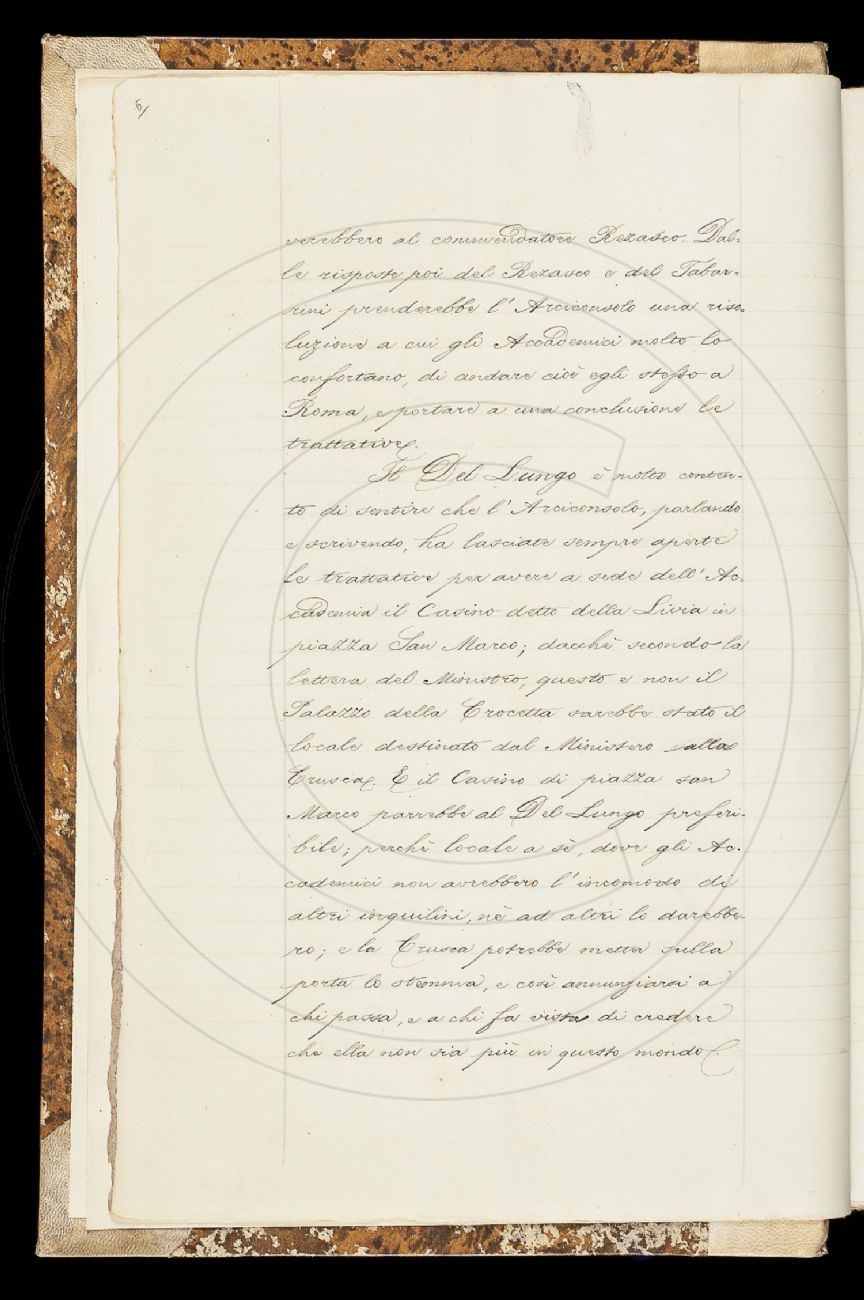 6/
verebbero al commendatore Rezasco. Dal-
le risposte poi del Rezasco e del Tabar-
rini prenderebbe l'Arciconsolo una riso-
luzione a cui gli Accademici molto lo
confortano, di andare cioè egli stesso a
Roma, e portare a una conclusione le
trattative.
Il Del Lungo è molto conten-
to di sentire che l'Arciconsolo, parlando
e scrivendo, ha lasciate sempre aperte
le trattative per avere a sede dell'Ac-
cademia il Casino detto della Livia in
piazza San Marco; dacchè secondo la
lettera del Ministro, questo e non il
Palazzo della Crocetta sarebbe stato il
locale destinato dal Ministero alla
Crusca. E il Casino di piazza san
Marco parrebbe al Del Lungo preferi-
bile; perchè locale a sè, dove gli Ac-
cademici non avrebbero l'incomodo di
altri inquilini, nè ad altri lo darebbe-
ro; e la Crusca potrebbe metter sulla
porta lo stemma, e così annunziarsi a
chi passa, e a chi fa vista di credere
che ella non sia più in questo mondo.